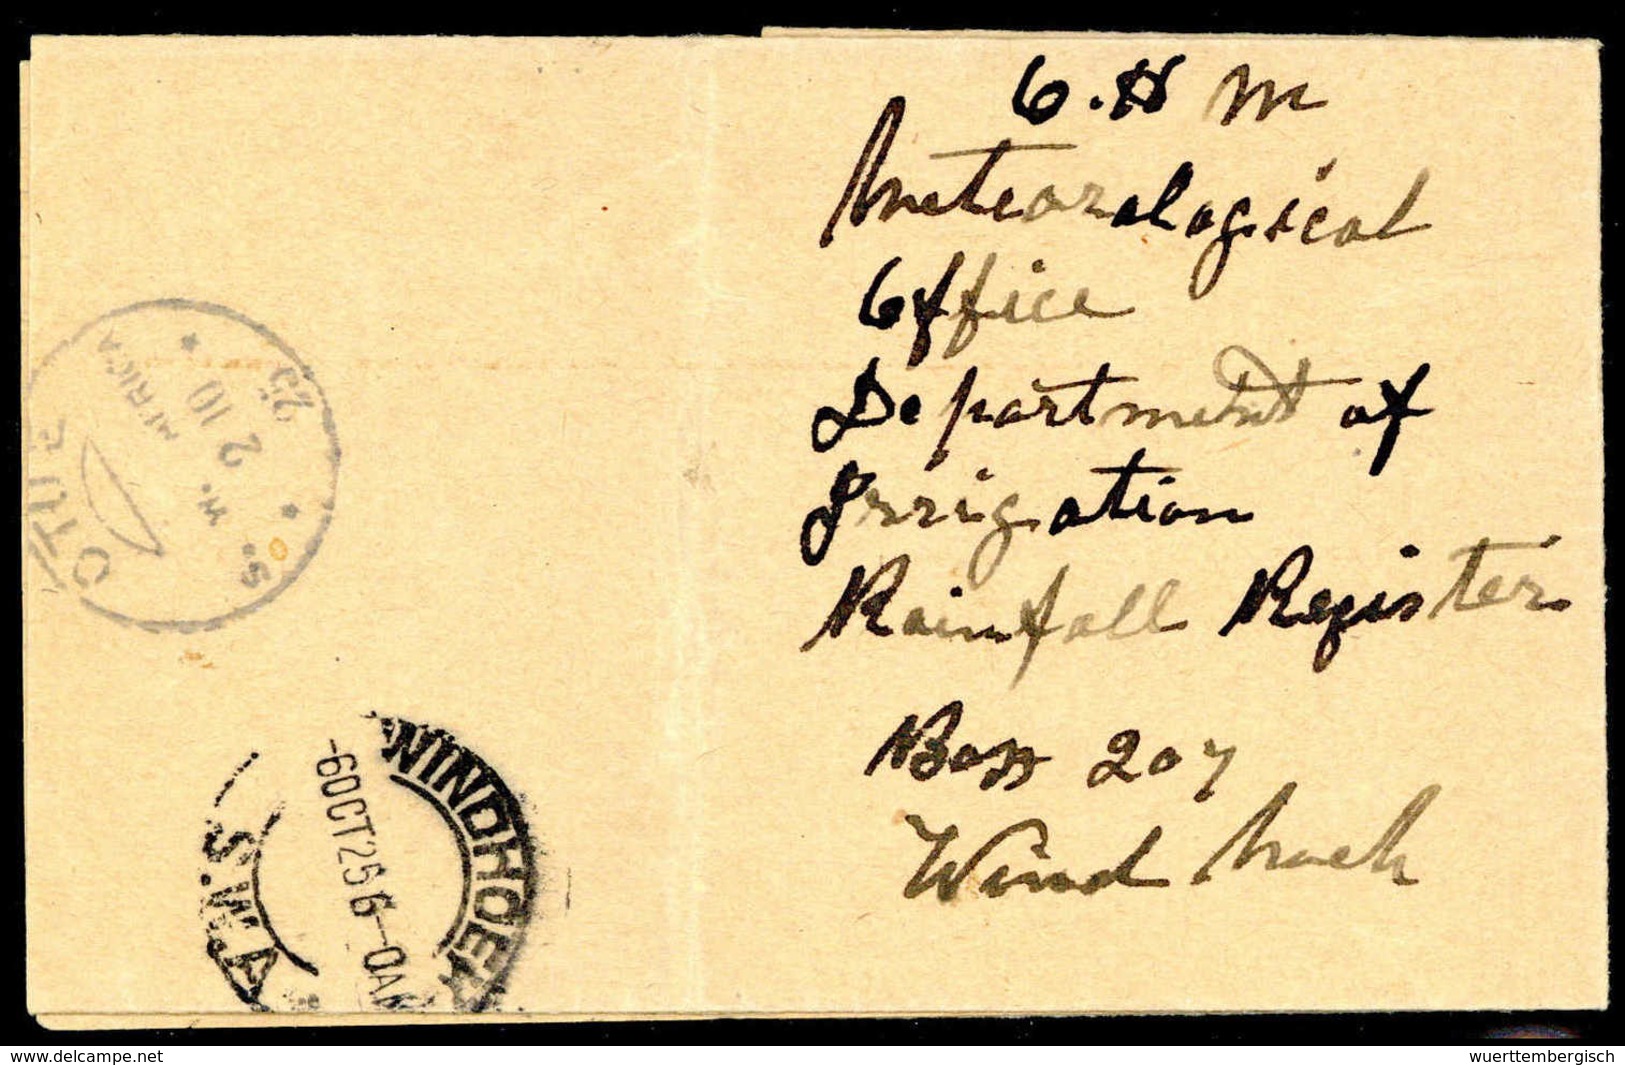 O.H M
Meteorological
Office
Department of
Irrigation
Rainfall Register
Box 207
Windhuek
S. W. AFRICA
2 10 25
WINDHOEK
-6OCT25 6-0AM
S.W.A
www.delcampe.net
wuerttembergisch